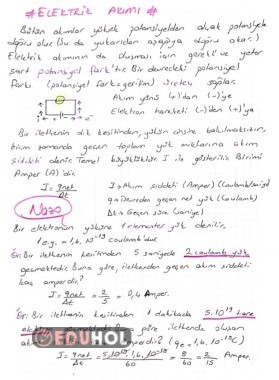 # ELEKTRİK AKIMI #
Bütün akımlar yüksek potansiyelden alçak potansiyele
doğru olur. (Su da yukarıdan aşağıya doğru akar.)
Elektrik akımının da oluşması için gerekli ve yeter
şart potansiyel fark'tır. Bir devredeki potansiyel
farkı (potansiyel fark = gerilim) üreteç sağlar.
Akım yönü (+)'dan (-)'ye
Elektron hareketi (-)'den (+)'ya
Bir iletkenin dik kesitinden, yükün cinsine bakılmaksızın,
birim zamanda geçen toplam yük miktarına akım
şiddeti denir. Temel büyüklüktür. I ile gösterilir. Birimi
Amper (A)'dir.
I = qnet / Δt
I → Akım şiddeti (Amper) (Coulomb/saniye)
q → Devreden geçen net yük (Coulomb)
Δt → Geçen süre (saniye)
Nazo
Bir elektronun yüküne 1 elementer yük denilir.
1 e.y. = 1,6. 10⁻¹⁹ coulomb'dur.
Ör: Bir iletkenin kesitinden 5 saniyede 2 coulomb yük
geçmektedir. Buna göre, iletkenden geçen akım şiddeti
kaç amperdir?
I = qnet / Δt = 2 / 5 = 0,4 Amper.
Ör: Bir iletkenin kesitinden 1 dakikada 5.10¹⁹ tane
göre iletkende oluşan
amperdir? (qe = 1,6. 10⁻¹⁹C)
I = qnet / Δt = 5.10¹⁹. 1,6. 10⁻¹⁹ / 60 = 8 / 60 = 2 / 15 Amper.
EDUHOL